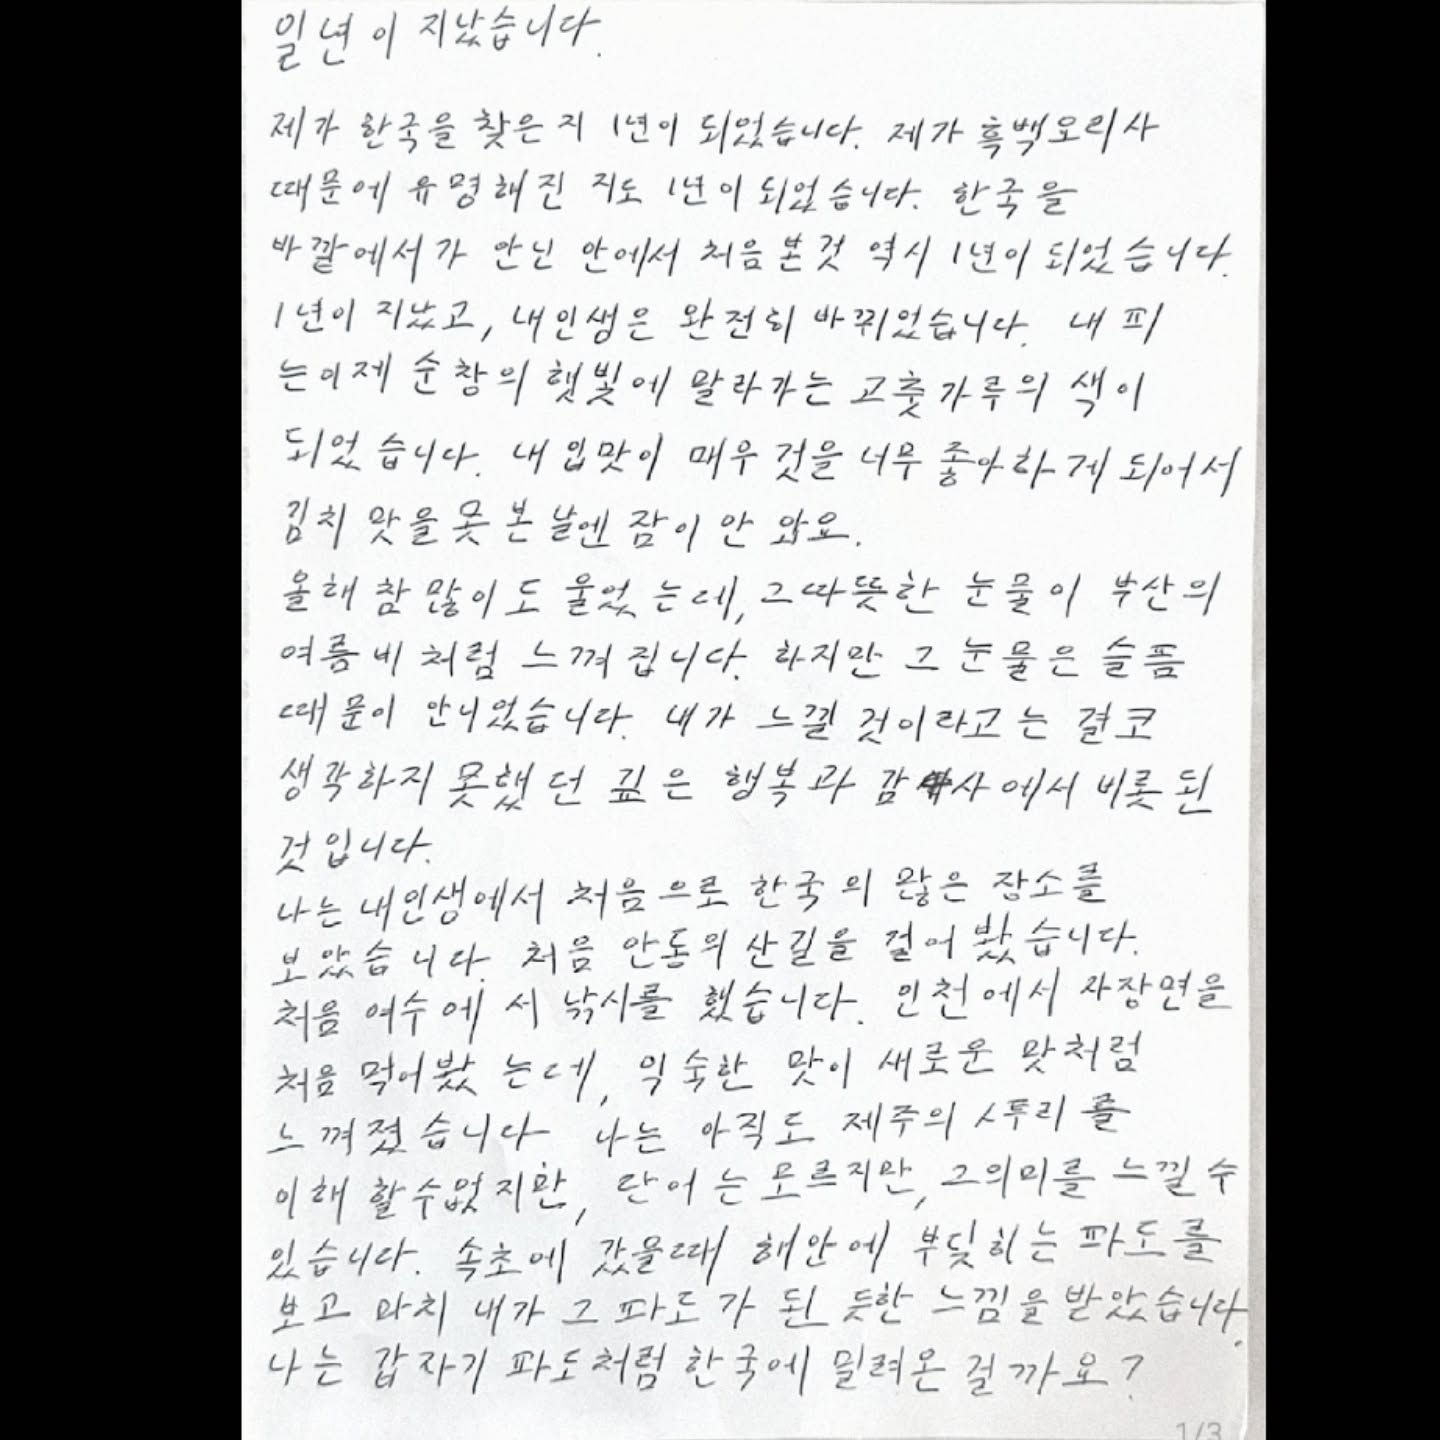 일년이 지났습니다.
제가 한국을 찾은지 1년이 되었습니다. 제가 흑백요리사
때문에 유명해진 지도 1년이 되었습니다. 한국을
바깥에서가 안닌 안에서 처음 본것 역시 1년이 되었습니다.
1년이 지났고, 내인생은 완전히 바뀌었습니다. 내 피
는이제 순창의 햇빛에 말라가는 고춧가루의 색이
되었습니다. 내 입맛이 매우 것을 너무 좋아하게되어서
김치 맛을 못 본 날엔 잠이 안 와요.
올해 참 많이도 울었는데, 그따뜻한 눈물이 부산의
여름비처럼 느껴집니다. 하지만 그 눈물은 슬픔
때문이 안니었습니다. 내가 느낄 것이라고는 결코
생각하지 못했던 깊은 행복과 감사에서 비롯된
것입니다.
나는내인생에서 처음으로 한국의 많은 장소를
보았습니다. 처음 안동의 산길을 걸어봤습니다.
처음 여수에서 낚시를 했습니다. 인천에서 자장면을
처음 먹어봤는데, 익숙한 맛이 새로운 맛처럼
느껴졌습니다 나는 아직도 제주의 사투리를
이해 할수없지만, 단어는 모르지만, 그의미를 느낄 수
있습니다. 속초에 갔을때 해안에 부딪히는 파도를
보고 마치 내가 그 파도가 된 듯한 느낌을 받았습니다.
나는 갑자기 파도처럼 한국에 밀려온 걸까요?
1/3